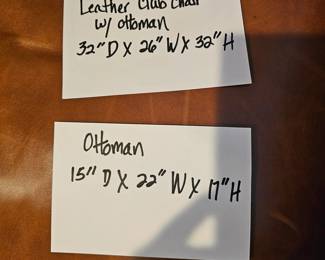 Leather Club Chair
w/ ottoman
32" D X 26" W X 32" H
Ottoman
15" D X 22" W X 17" H